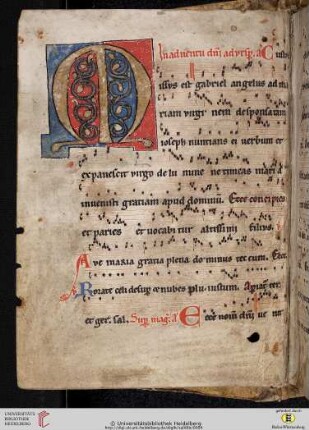 In aduentu dñi ad vesp. a Custos
Missus est gabriel angelus ad ma
riam virgi nem desponsatam
ioseph nuntians ei uerbum et
expauescit virgo de lu mine ne timeas mari a
inuenisti gratiam apud dominū. Ecce concipies
et paries et vocabi tur altissimi filius.
Aue maria gratia plena dominus tecum. Ecce.
Rorate celi desup et nubes plu. iustum. Apiat ter.
et ger. sal. Sup mag. a Ecce nomē dñi ue nit
UNIVERSITÄTS-
BIBLIOTHEK
HEIDELBERG
© Universitätsbibliothek Heidelberg
gefördert durch
Baden-Württemberg